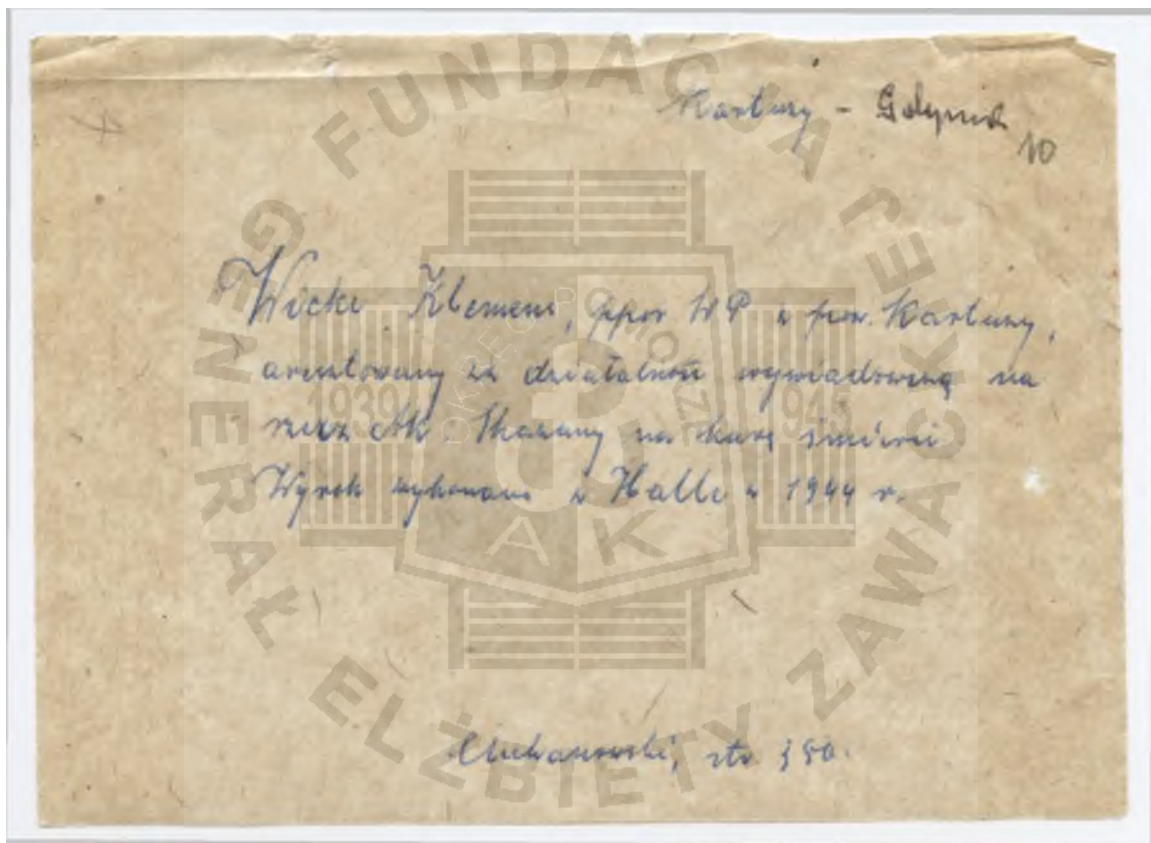 Kartuzy - Gdynia
10
Wicki Klemens, ppor WP z pow. Kartuzy,
aresztowany za działalność wywiadowczą na
rzecz AK. Skazany na karę śmierci
Wyrok wykonano w Halle w 1944 r.
Ciechanowski, str. 350.
FUNDACJA GENERAŁ ELŻBIETY ZAWACKIEJ
OKRĘG POMORZE
1939 1945
AK